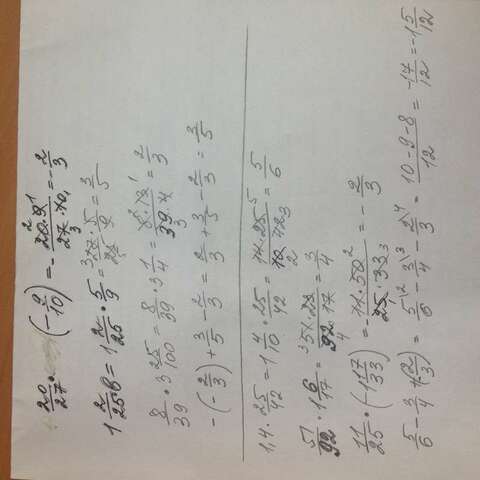 20/27 · (-9/10) = -20·9/27·10 = -2/3
1 2/25 · 6 = 1 2/25 · 5/9 = 27/25 · 5/9 = 3/5
8/39 · 3 25/100 = 8/39 · 3 1/4 = 8·13/39·4 = 2/3
-(-2/3) + 3/5 - 2/3 = 2/3 + 3/5 - 2/3 = 3/5
1,4 · 25/42 = 1 4/10 · 25/42 = 14·25/10·42 = 5/6
51/92 · 1 6/17 = 51·23/92·17 = 3/4
11/25 · (-1 17/33) = -11·50/25·33 = -2/3
5/6 - 3/4 + (-2/3) = 5/6 - 3/4 - 2/3 = 10-9-8/12 = -17/12 = -1 5/12